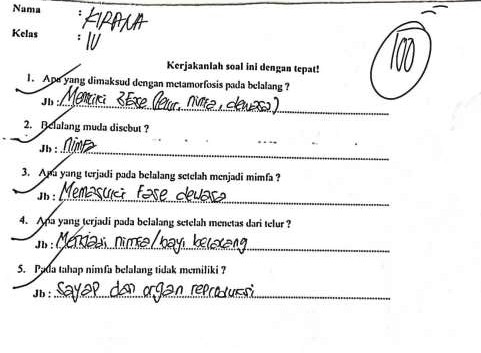 Nama : KIRANA
Kelas : IV
100
Kerjakanlah soal ini dengan tepat!
1. Apa yang dimaksud dengan metamorfosis pada belalang ?
Jb : Memiliki 3 Fase (telur, nimfa, dewasa)
2. Belalang muda disebut ?
Jb : nimfa
3. Apa yang terjadi pada belalang setelah menjadi mimfa ?
Jb : Memasuki Fase dewasa
4. Apa yang terjadi pada belalang setelah menetas dari telur ?
Jb : Menjadi nimfa/bayi belalang
5. Pada tahap nimfa belalang tidak memiliki ?
Jb : Sayap dan organ reproduksi